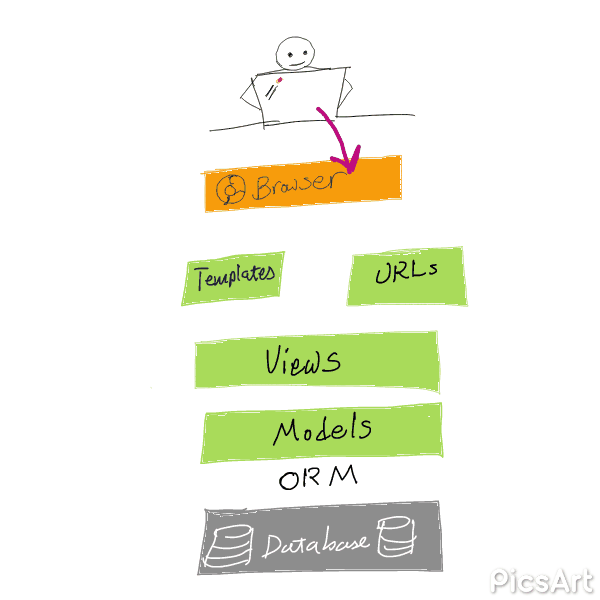 Browser
Templates
URLs
Views
Models
ORM
Database
PicsArt